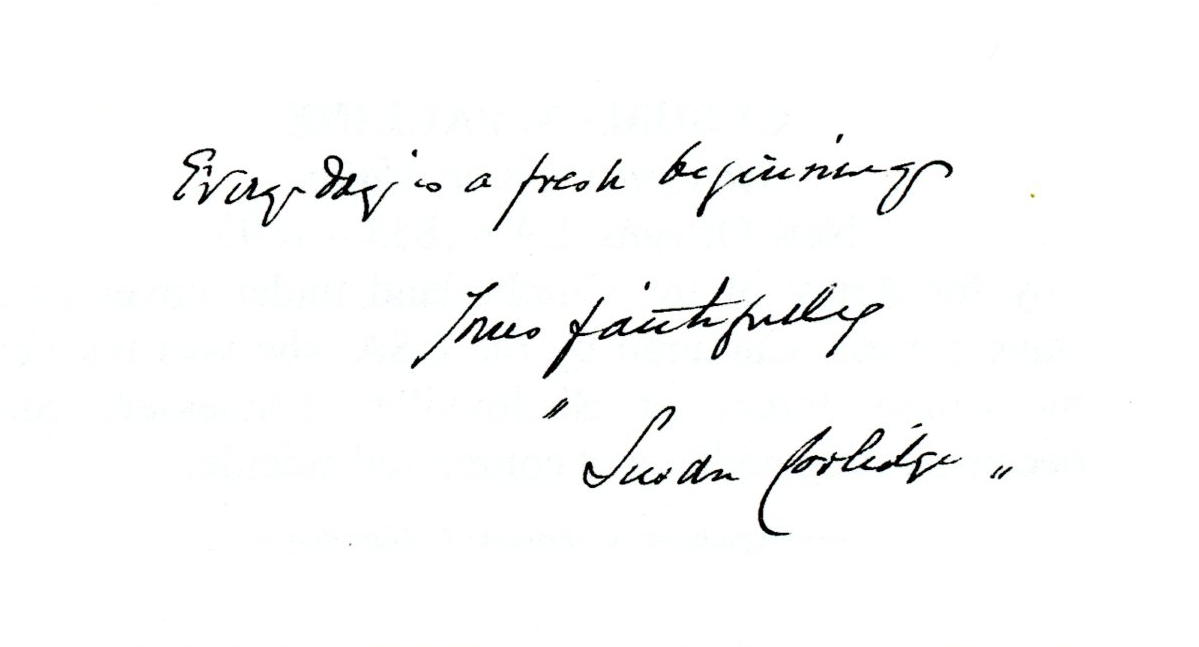 Every day is a fresh beginning
Yours faithfully
" Susan Coolidge "